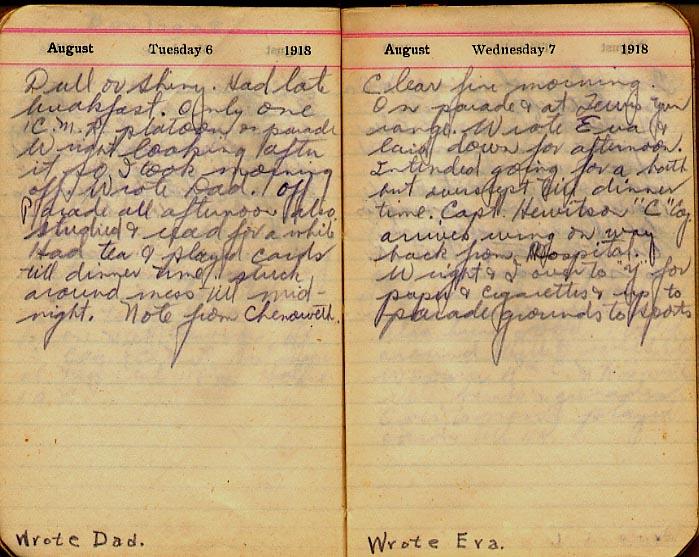 August Tuesday 6 1918
Dull or shiny. Had late
breakfast. Only one
C.M.R. platoon on parade
Wright looking after
it so I took morning
off. Wrote Dad. Off
Parade all afternoon also
studied & read for a while
Had tea & played cards
till dinner time, stuck
around mess till mid-
night. Note from Chenoweth.
Wrote Dad.
August Wednesday 7 1918
Clear fine morning.
On parade & at Lewis gun
range. Wrote Eva &
laid down for afternoon.
Intended going for a bath
but overslept till dinner
time. Capt. Hewitson "C" Coy
arrives, being on way
back from Hospital.
Wright & I over to "Y" for
paper & cigarettes & up to
parade grounds to sports
Wrote Eva.